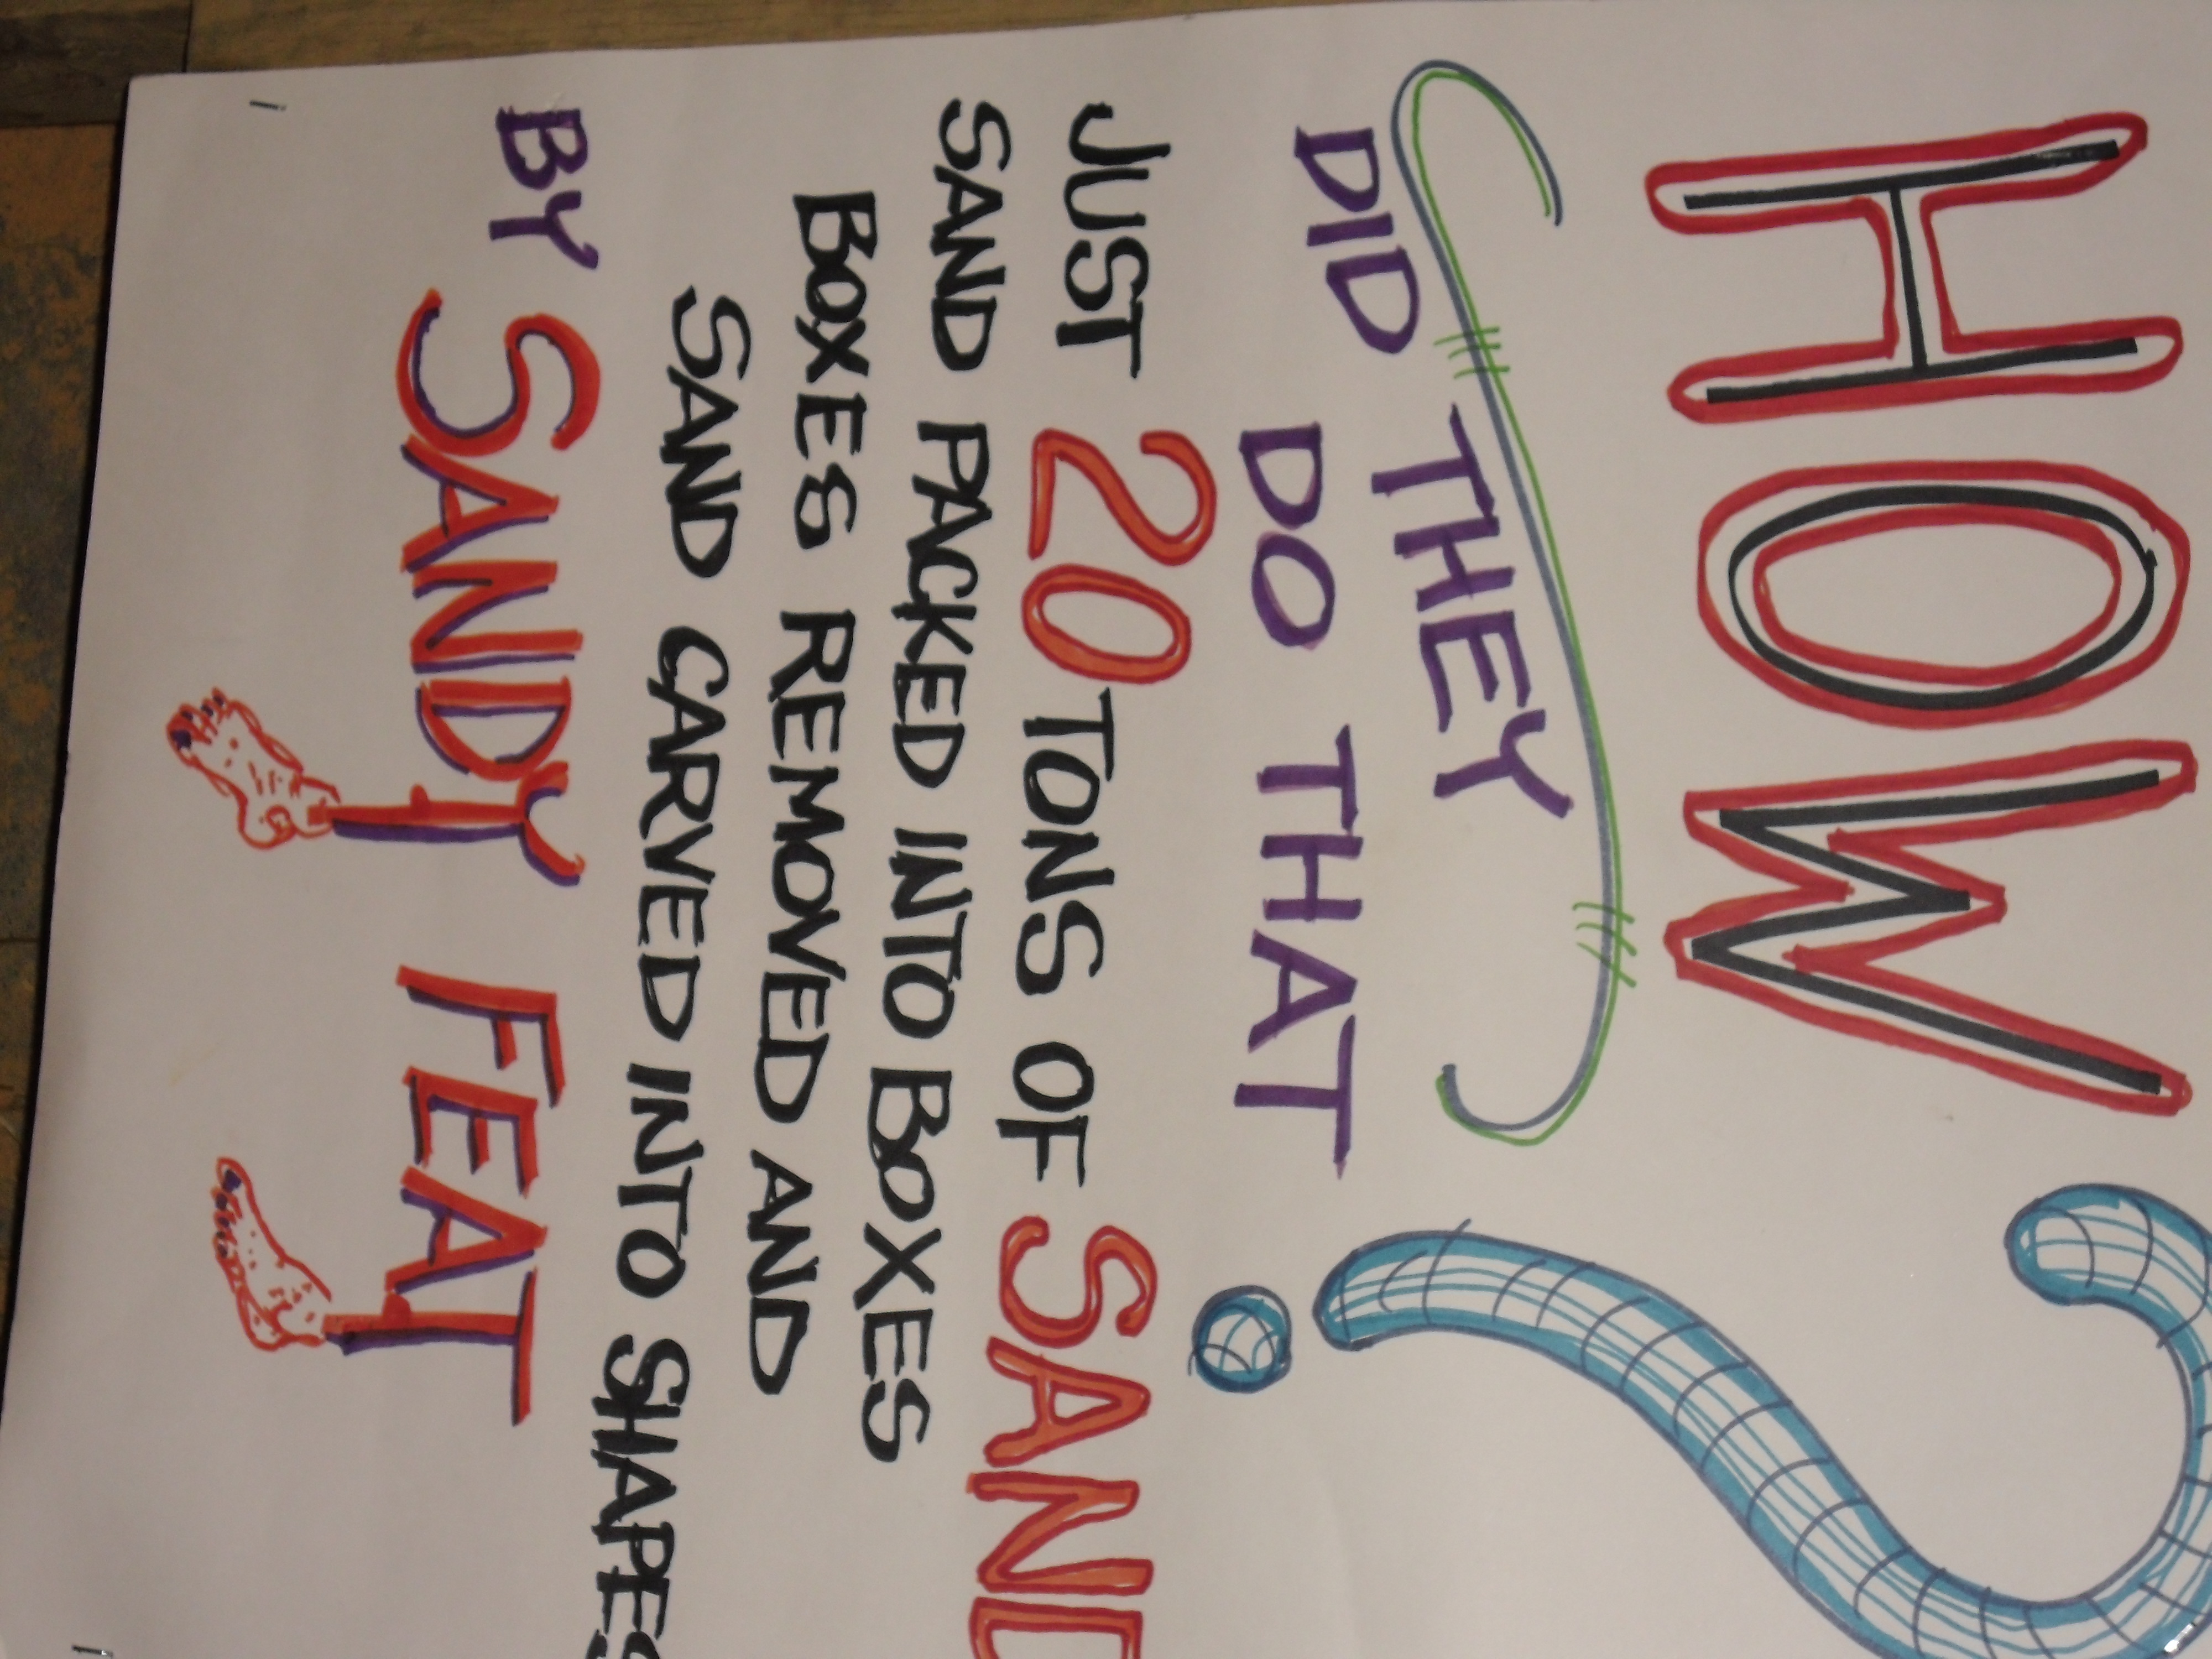 HOW?
DID THEY
DO THAT
JUST 20 TONS OF SAND
SAND PACKED INTO BOXES
BOXES REMOVED AND
SAND CARVED INTO SHAPES
BY SANDY FEAT